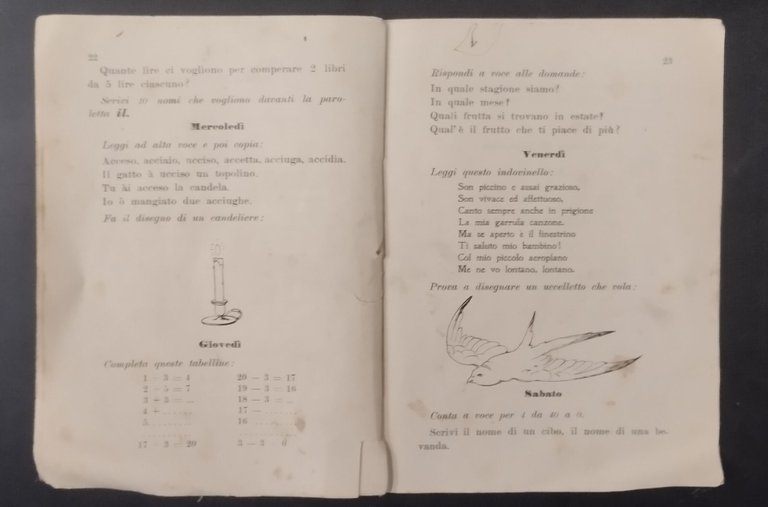 22
Quante lire ci vogliono per comperare 2 libri
da 5 lire ciascuno?
Scrivi 10 nomi che vogliono davanti la paro-
letta il.
Mercoledì
Leggi ad alta voce e poi copia:
Acceso, acciaio, ucciso, accetta, acciuga, accidia.
Il gatto à ucciso un topolino.
Tu ài acceso la candela.
Io ò mangiato due acciughe.
Fa il disegno di un candeliere:
Giovedì
Completa queste tabelline:
1 + 3 = 4
2 + 5 = 7
3 + 3 = ...
4 + .......
5 .........
...........
17 + 3 = 20
20 — 3 = 17
19 — 3 = 16
18 — 3 = ...
17 — .......
16 .........
...........
3 — 3 = 0
23
Rispondi a voce alle domande:
In quale stagione siamo?
In quale mese?
Quali frutta si trovano in estate?
Qual'è il frutto che ti piace di più?
Venerdì
Leggi questo indovinello:
Son piccino e assai grazioso,
Son vivace ed affettuoso,
Canto sempre anche in prigione
La mia garrula canzone.
Ma se aperto è il finestrino
Ti saluto mio bambino!
Col mio piccolo aeroplano
Me ne vo lontano, lontano.
Prova a disegnare un uccelletto che vola:
Sabato
Conta a voce per 4 da 40 a 0.
Scrivi il nome di un cibo, il nome di una be-
vanda.